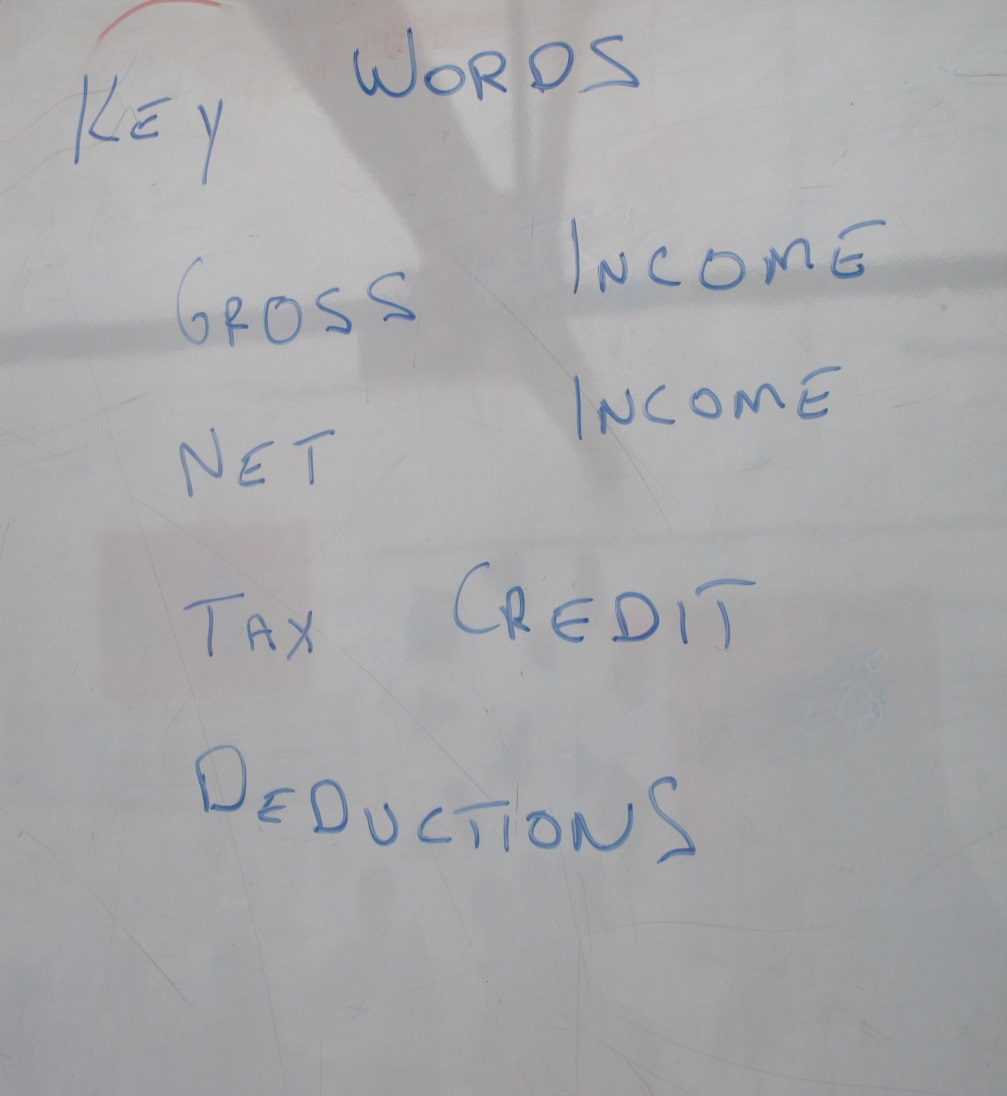 KEY WORDS
GROSS INCOME
NET INCOME
TAX CREDIT
DEDUCTIONS